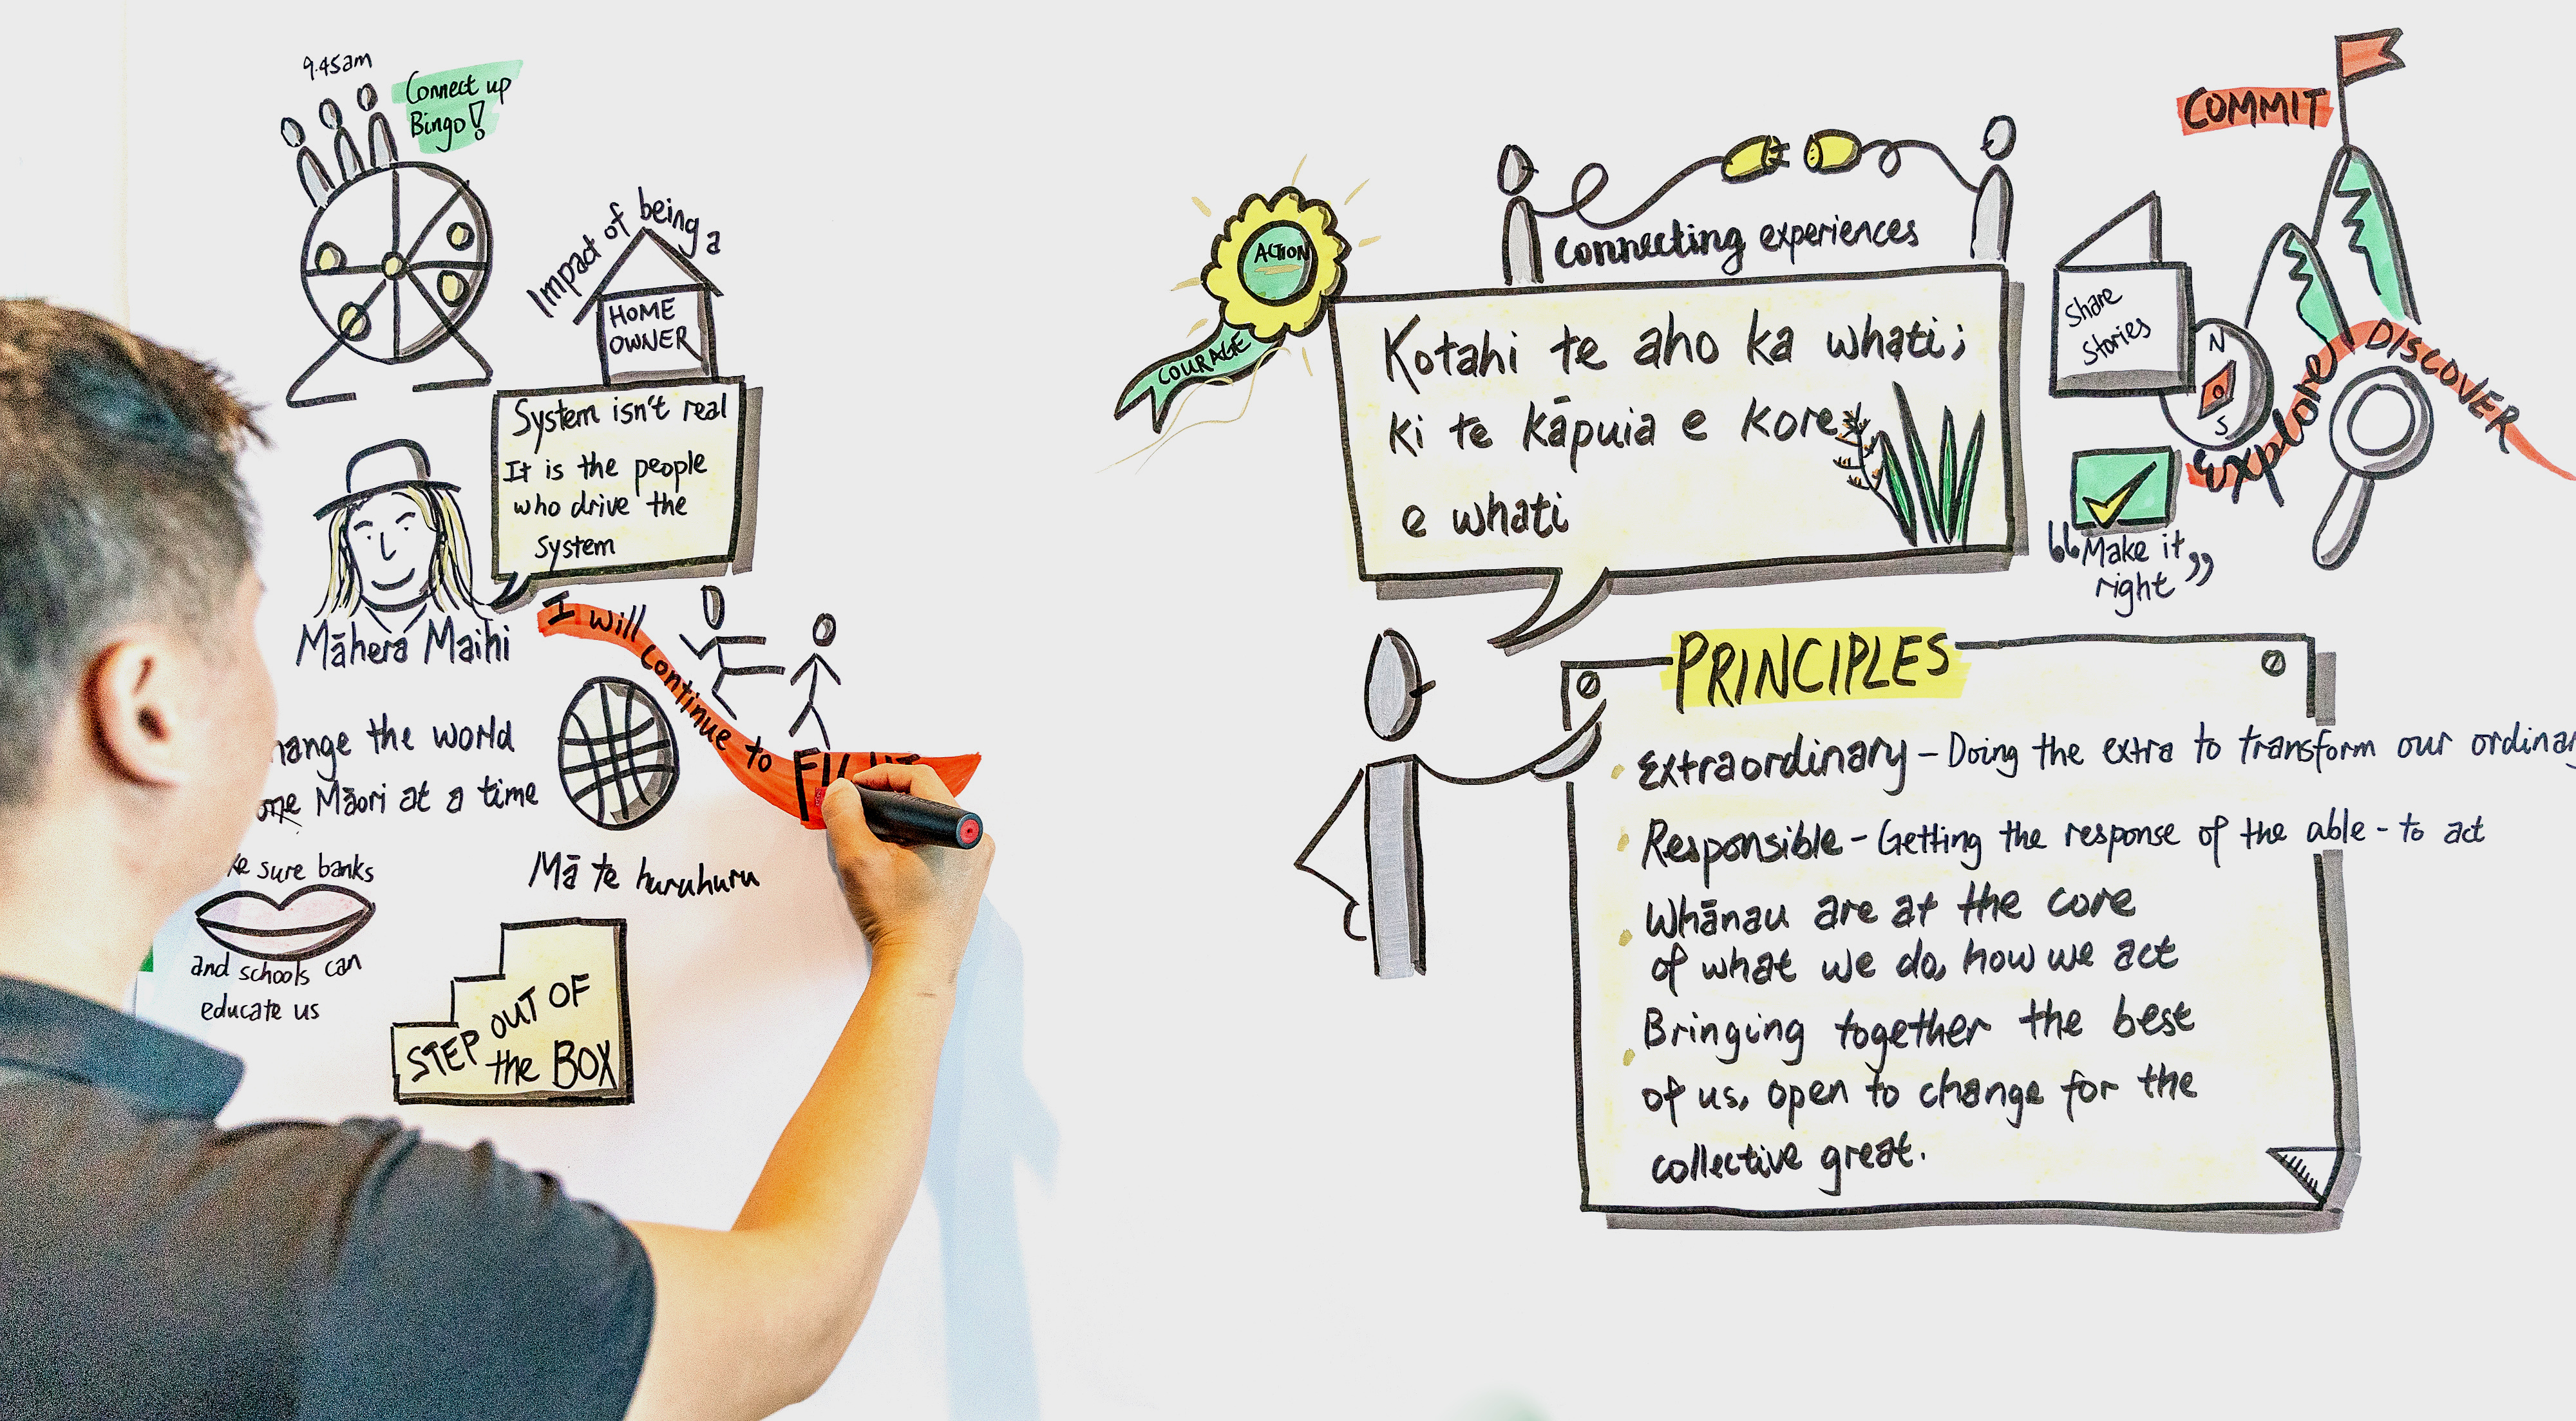 9.45am
Connect up
Bingo!
Impact of being a
HOME
OWNER
System isn't real
It is the people
who drive the
system
Māhera Maihi
I will continue to
the world
Māori at a time
sure banks
and schools can
educate us
Mā te huruhuru
STEP OUT OF
the BOX
ACTION
COURAGE
connecting experiences
Kotahi te aho ka whati;
ki te kāpuia e kore
e whati
COMMIT
Share
Stories
N
S
Explore
DISCOVER
"Make it
right"
PRINCIPLES
Extraordinary - Doing the extra to transform our
Responsible - Getting the response of the able - to act
Whānau are at the core
of what we do, how we act
Bringing together the best
of us, open to change for the
collective great.